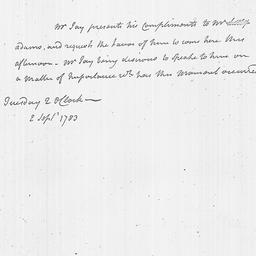 Mr Jay presents his Compliments to Mr
adams, and requests the Favor of him to come here this
afternoon – Mr Jay being desirous to speak to him on
a Matter of Importance wh. has this Moment occurred
Tuesday 2 OClock —
2 Sept. 1783